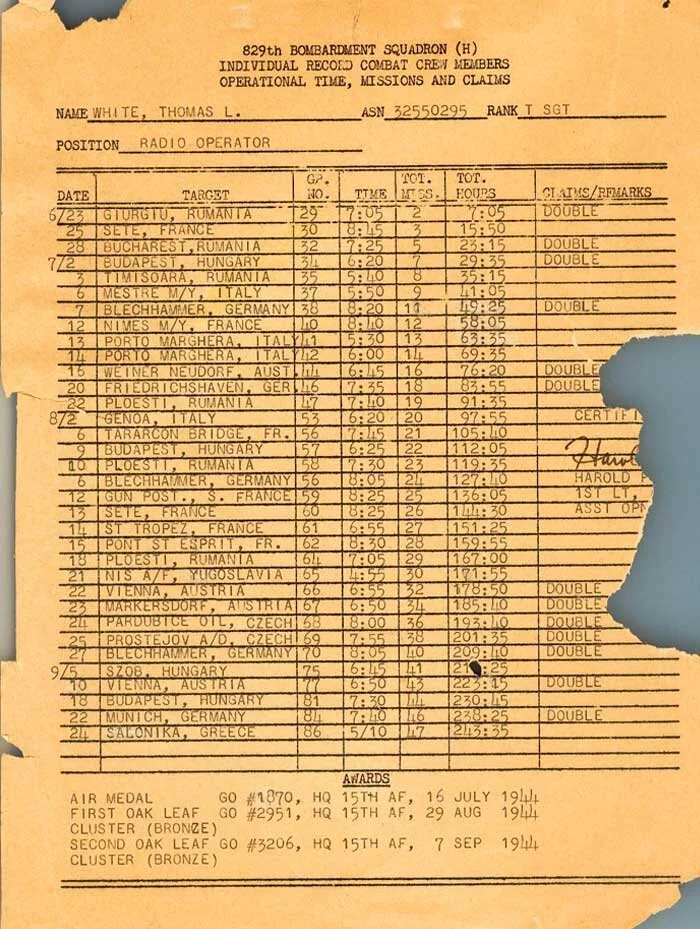 829th BOMBARDMENT SQUADRON (H)
INDIVIDUAL RECORD COMBAT CREW MEMBERS
OPERATIONAL TIME, MISSIONS AND CLAIMS
NAME WHITE, THOMAS L. ASN 32550295 RANK T SGT
POSITION RADIO OPERATOR
GP. TOT. TOT.
DATE TARGET NO. TIME MISS. HOURS CLAIMS/REMARKS
6/23 GIURGIU, RUMANIA 29 7:05 2 7:05 DOUBLE
25 SETE, FRANCE 30 8:45 3 15:50
28 BUCHAREST, RUMANIA 32 7:25 5 23:15 DOUBLE
7/2 BUDAPEST, HUNGARY 34 6:20 7 29:35 DOUBLE
3 TIMISOARA, RUMANIA 35 5:40 8 35:15
6 MESTRE M/Y, ITALY 37 5:50 9 41:05
7 BLECHHAMMER, GERMANY 38 8:20 11 49:25 DOUBLE
12 NIMES M/Y, FRANCE 40 8:40 12 58:05
13 PORTO MARGHERA, ITALY 41 5:30 13 63:35
14 PORTO MARGHERA, ITALY 42 6:00 14 69:35
16 WEINER NEUDORF, AUST. 44 6:45 16 76:20 DOUBLE
20 FRIEDRICHSHAVEN, GER. 46 7:35 18 83:55 DOUBLE
22 PLOESTI, RUMANIA 47 7:40 19 91:35
8/2 GENOA, ITALY 53 6:20 20 97:55 CERTIFI
6 TARARCON BRIDGE, FR. 56 7:45 21 105:40
9 BUDAPEST, HUNGARY 57 6:25 22 112:05
10 PLOESTI, RUMANIA 58 7:30 23 119:35 Harol
6 BLECHHAMMER, GERMANY 56 8:05 24 127:40 HAROLD
12 GUN POST., S. FRANCE 59 8:25 25 136:05 1ST LT,
13 SETE, FRANCE 60 8:25 26 144:30 ASST OPN
14 ST TROPEZ, FRANCE 61 6:55 27 151:25
15 PONT ST ESPRIT, FR. 62 8:30 28 159:55
18 PLOESTI, RUMANIA 64 7:05 29 167:00
21 NIS A/F, YUGOSLAVIA 65 4:55 30 171:55
22 VIENNA, AUSTRIA 66 6:55 32 178:50 DOUBLE
23 MARKERSDORF, AUSTRIA 67 6:50 34 185:40 DOUBLE
24 PARDUBICE OIL, CZECH 68 8:00 36 193:40 DOUBLE
25 PROSTEJOV A/D, CZECH 69 7:55 38 201:35 DOUBLE
27 BLECHHAMMER, GERMANY 70 8:05 40 209:40 DOUBLE
9/5 SZOB, HUNGARY 75 6:45 41 :25
10 VIENNA, AUSTRIA 77 6:50 43 223:15 DOUBLE
18 BUDAPEST, HUNGARY 81 7:30 44 230:45
22 MUNICH, GERMANY 84 7:40 46 238:25 DOUBLE
24 SALONIKA, GREECE 86 5/10 47 243:35
AWARDS
AIR MEDAL GO #1870, HQ 15TH AF, 16 JULY 1944
FIRST OAK LEAF GO #2951, HQ 15TH AF, 29 AUG 1944
CLUSTER (BRONZE)
SECOND OAK LEAF GO #3206, HQ 15TH AF, 7 SEP 1944
CLUSTER (BRONZE)